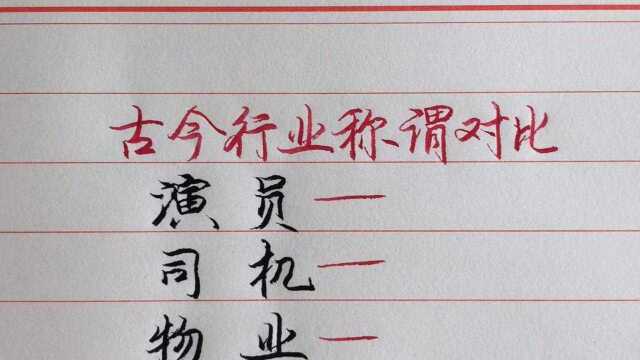 古今行业称谓对比
演员—
司机—
物业—